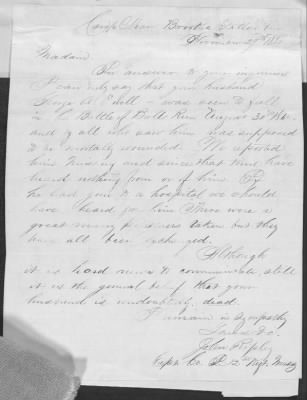 Camp Near Brooks Station Va
November 29th 186
Madam.
In answer to your inquiries
I can only say that your husband
was seen to fall
in the Battle of Bull Run August 30th 1862.
and by all who saw him was supposed
to be mortally wounded. We reported
him missing and since that time have
heard nothing from or of him. If
he had gone to a hospital we should
have heard from him. There were a
great many prisoners taken but they
have all been exchanged.
Although
it is hard news to communicate, still
it is the general belief that your
husband is undoubtedly dead.
I remain in sympathy
Yours &c.
John Ripley
Capt. Co. 2nd Regt.